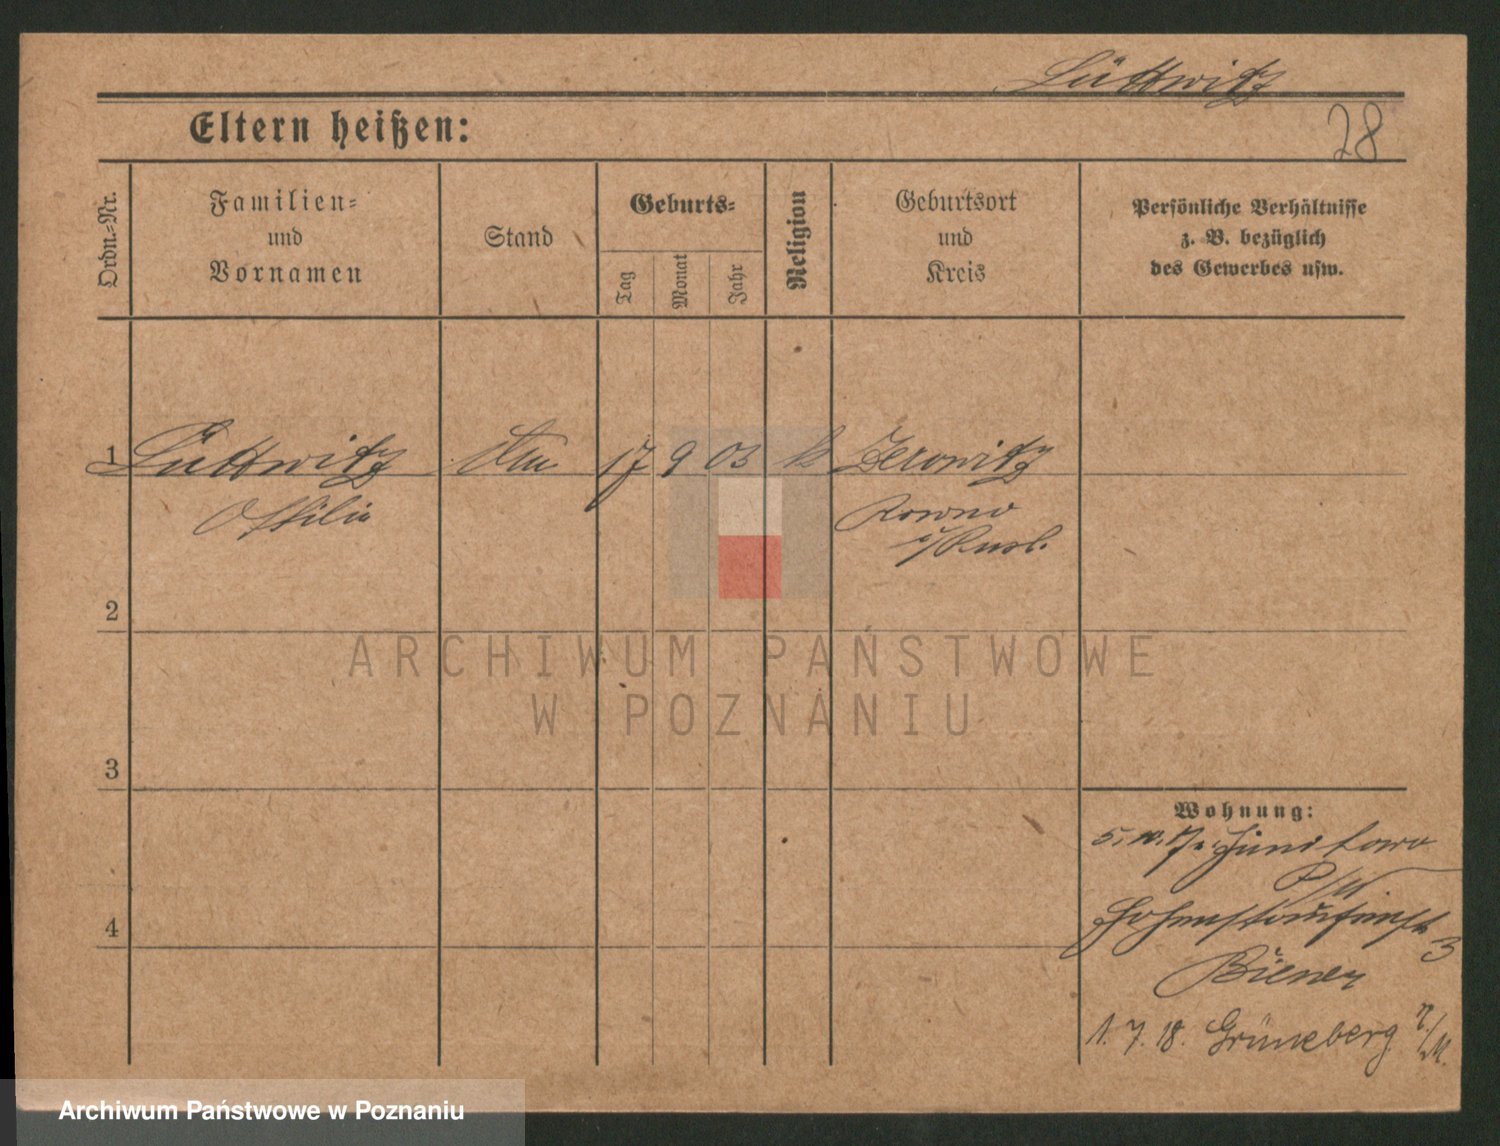 Lüttwitz
28
Eltern heißen:
Ordn.-Nr.
Familien-
und
Vornamen
Stand
Geburts-
Tag
Monat
Jahr
Religion
Geburtsort
und
Kreis
Persönliche Verhältnisse
z. B. bezüglich
des Gewerbes usw.
1 Lüttwitz 17 9 03 k Zerowitz
Ottilie Kowno
i/Russl.
2
3
4
Wohnung:
5. 10. 17
P/W
Hohenstaufenstr
3
Biener
1. 7. 18. Grüneberg
ARCHIWUM PAŃSTWOWE
W POZNANIU
Archiwum Państwowe w Poznaniu